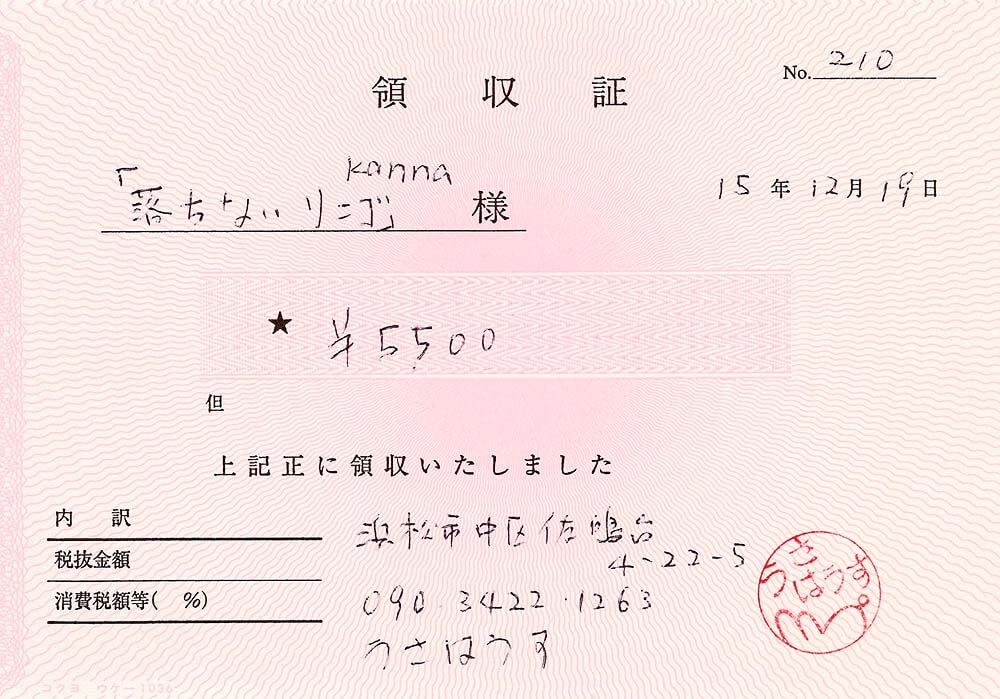 No. 210
領収証
kanna
「落ちないリンゴ」 様
15年12月19日
★ ¥5500
但
上記正に領収いたしました
内訳
税抜金額
消費税額等( %)
浜松市中区佐鳴台
4-22-5
090・3422・1263
うさはうす
うさはうす
コクヨ ウケ-1036